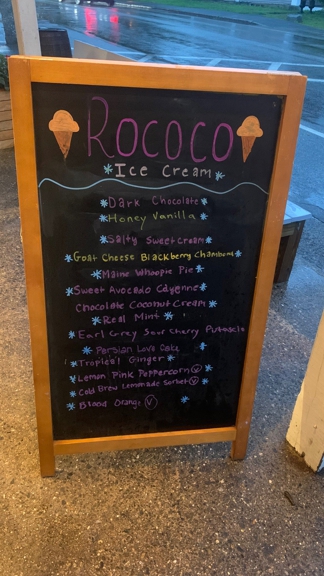 Rococo
Ice Cream
Dark Chocolate
Honey Vanilla
Salty Sweet Cream
Goat Cheese Blackberry Chambord
Maine Whoopie Pie
Sweet Avocado Cayenne
Chocolate Coconut Cream
Real Mint
Earl Grey Sour Cherry
Persian Love Cake
Tropical Ginger
Lemon Pink Peppercorn V
Cold Brew Lemonade Sorbet V
Blood Orange V